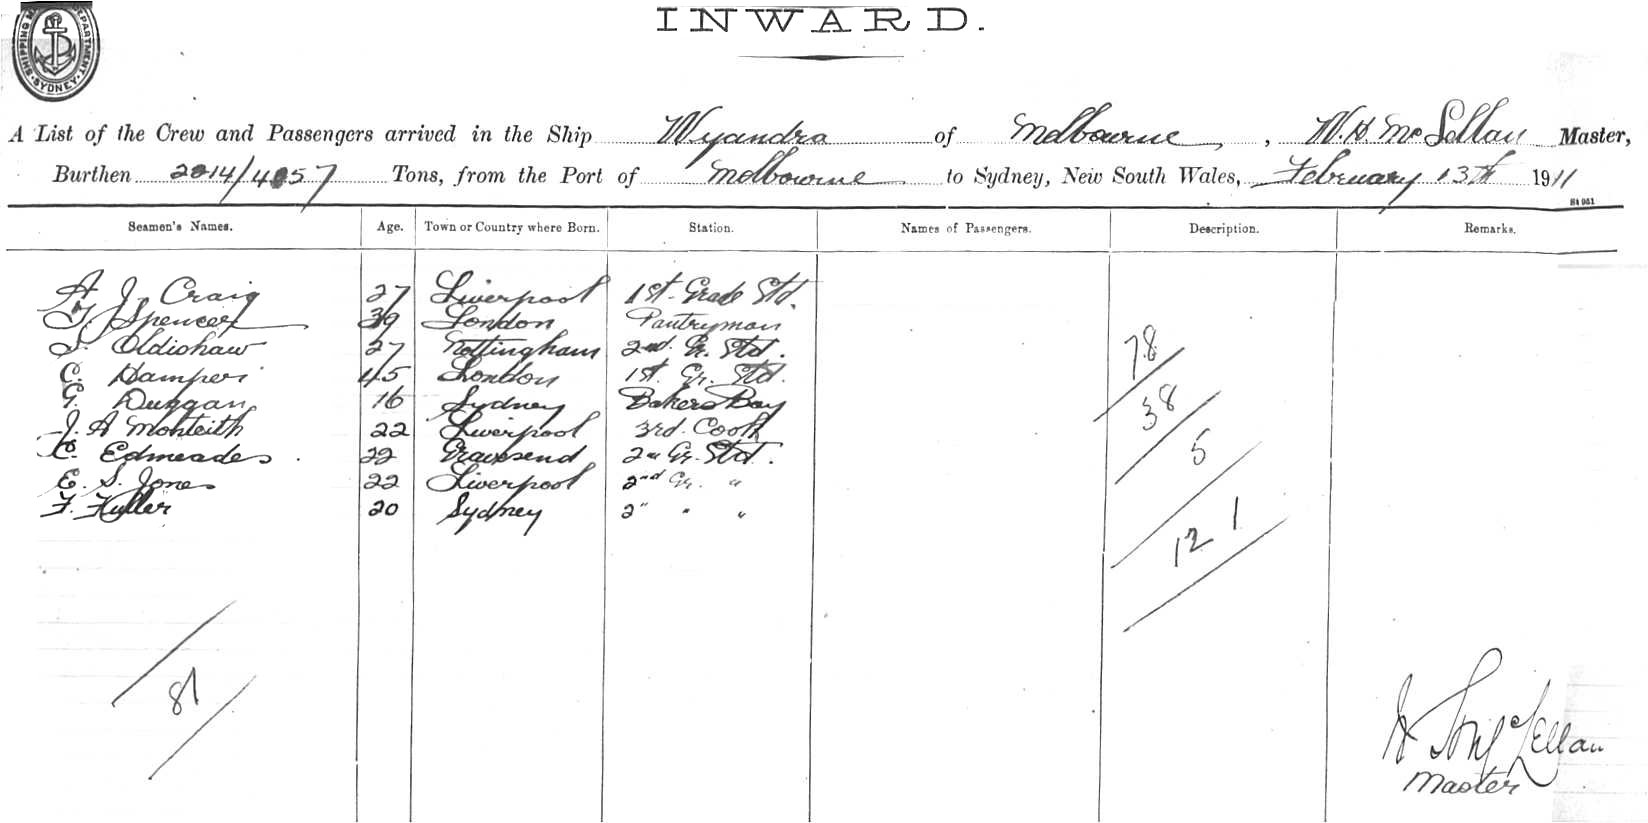 SHIPPING DEPARTMENT. SYDNEY.
INWARD.
A List of the Crew and Passengers arrived in the Ship Wyandra of Melbourne, W. H. McLellan Master,
Burthen 2014/4057 Tons, from the Port of Melbourne to Sydney, New South Wales, February 13th 1911
Seamen's Names. Age. Town or Country where Born. Station. Names of Passengers. Description. Remarks.
A J. Craig 27 Liverpool 1st. Grade Std.
Spencer 39 London Pantryman
Oldishaw 27 Nottingham 2nd. Gr. Std.
C. 45 London 1st. Gr. Std.
G. Duggan 16 Sydney Bakers Boy
J. A Monteith 22 Liverpool 3rd. Cook
C. Edmeades 22 Gravesend 2nd Gr. Std.
E. S. Jones 22 Liverpool 2nd Gr. "
F. Fuller 20 Sydney 2" " "
78
38
5
121
81
McLellan
Master